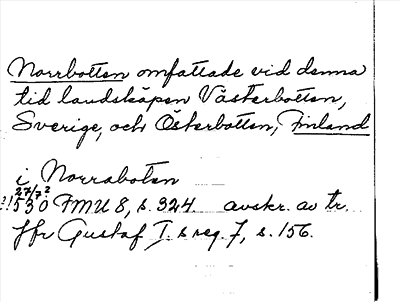 Norrbotten omfattade vid denna
tid landskapen Västerbotten,
Sverige, och Österbotten, Finland
i Norraboten
27/7 2
1530 FMU 8, s. 324. avskr. av tr.
Jfr Gustaf I:s reg. 7, s. 156.